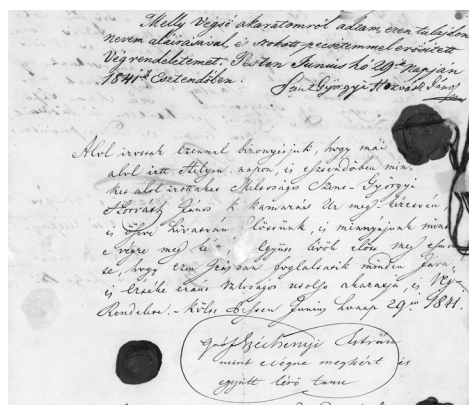 Melly Végső akaratomról adtam ezen tulajdon
nevem aláirásával, és szokott pecsetemmel erösitett
Végrendeletemet. Pesten Junius hó 29ik napján
1841ik Esztendőben.
Szent Györgyi Horváth János
Alol irossak ezennel bizonyijuk, hogy mái
alol irtt Helyen, napon, és esztendöben min-
ket alol irottakat Méltoságos Szent-Györgyi
Horváth János k. kamarás Ur meg kérvén,
és Öszve hivatván Elössünk, és minnyájunk mint
e végre meg együtt lévök elött meg esmér-
te, hogy ezen Irásban foglaltatik minden Java,
és Értéke eránt utolsó akarattja, és Vég-
Rendelése. - Költt Pesten Junius honap 29én 1841.
gróf Széchenyi István
mint végre megkért és
együtt lévő tanu